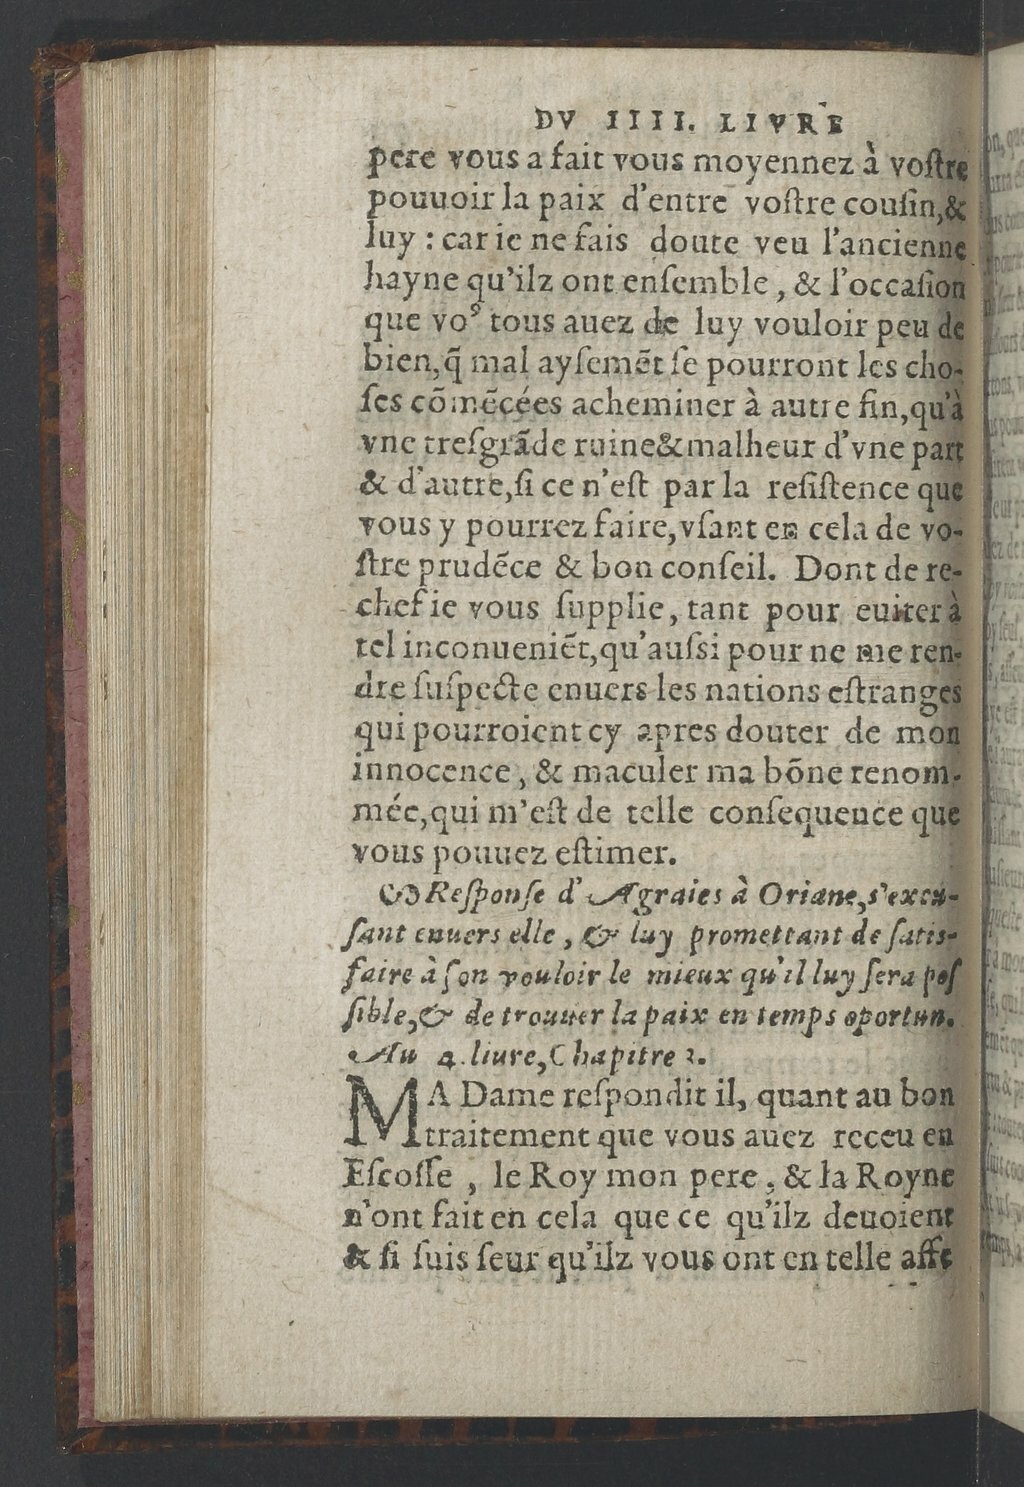 DV IIII. LIVRE
pere vous a fait vous moyennez à voſtre
pouuoir la paix d'entre voſtre couſin,&
luy : car ie ne fais doute veu l'ancienne
hayne qu'ilz ont enſemble, & l'occaſion
que voꝰ tous auez de luy vouloir peu de
bien,q̃ mal ayſemẽt ſe pourront les cho-
ſes cõmẽcées acheminer à autre fin,qu'à
vne treſgrãde ruine&malheur d'vne part
& d'autre,ſi ce n'eſt par la reſiſtence que
vous y pourrez faire,vſant en cela de vo-
ſtre prudẽce & bon conſeil. Dont de re-
chef ie vous ſupplie, tant pour euiter à
tel inconueniẽt,qu'auſsi pour ne me ren-
dre ſuſpecte enuers les nations eſtranges
qui pourroient cy apres douter de mon
innocence, & maculer ma bõne renom-
mée,qui m'eſt de telle conſequence que
vous pouuez eſtimer.
Reſponſe d'Agraies à Oriane,s'excu-
ſant enuers elle, & luy promettant de ſatis-
faire à ſon vouloir le mieux qu'il luy ſera poſ
ſible,& de trouuer la paix en temps oportun.
Au 4. liure,Chapitre 2.
MA Dame reſpondit il, quant au bon
traitement que vous auez receu en
Eſcoſſe , le Roy mon pere , & la Royne
n'ont fait en cela que ce qu'ilz deuoient
& ſi ſuis ſeur qu'ilz vous ont en telle affe